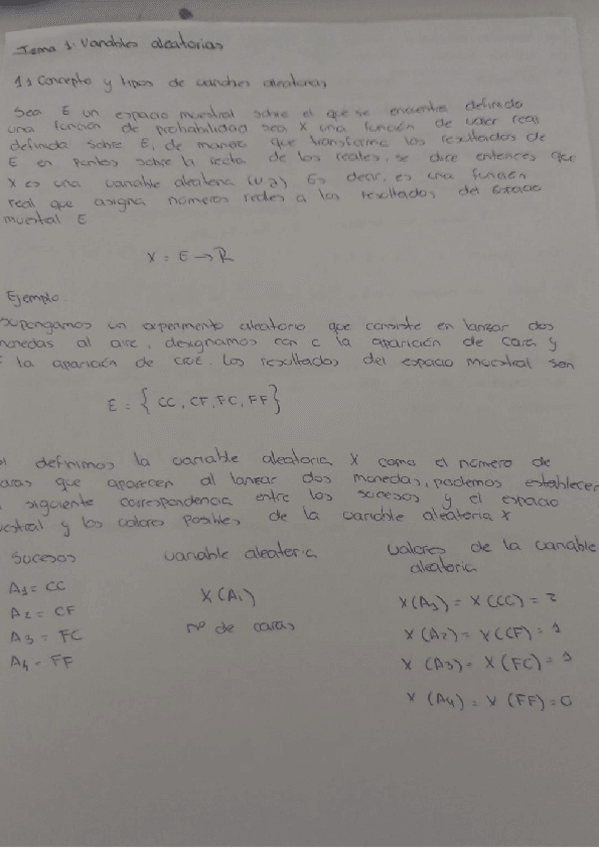 Tema 1. Variables aleatorias
1.1 Concepto y tipos de variables aleatorias
Sea E un espacio muestral sobre el que se encuentra definida
una función de probabilidad sea X una función de valor real
definida sobre E, de manera que transforme los resultados de
E en puntos sobre la recta de los reales, se dice entonces que
X es una variable aleatoria (v.a) Es decir, es una función
real que asigna números reales a los resultados del espacio
muestral E
X = E → R
Ejemplo.
supongamos un experimento aleatorio que consiste en lanzar dos
monedas al aire, designamos con c la aparición de cara y
la aparición de cruz. Los resultados del espacio muestral son
E = { CC, CF, FC, FF }
definimos la variable aleatoria X como el número de
caras que aparecen al lanzar dos monedas, podemos establecer
siguiente correspondencia entre los sucesos y el espacio
muestral y los valores posibles de la variable aleatoria X
Sucesos variable aleatoria valores de la variable
aleatoria
A1 = CC X(Ai) X(A1) = X(CC) = 2
A2 = CF nº de caras X(A2) = X(CF) = 1
A3 = FC X(A3) = X(FC) = 1
A4 = FF X(A4) = X(FF) = 0